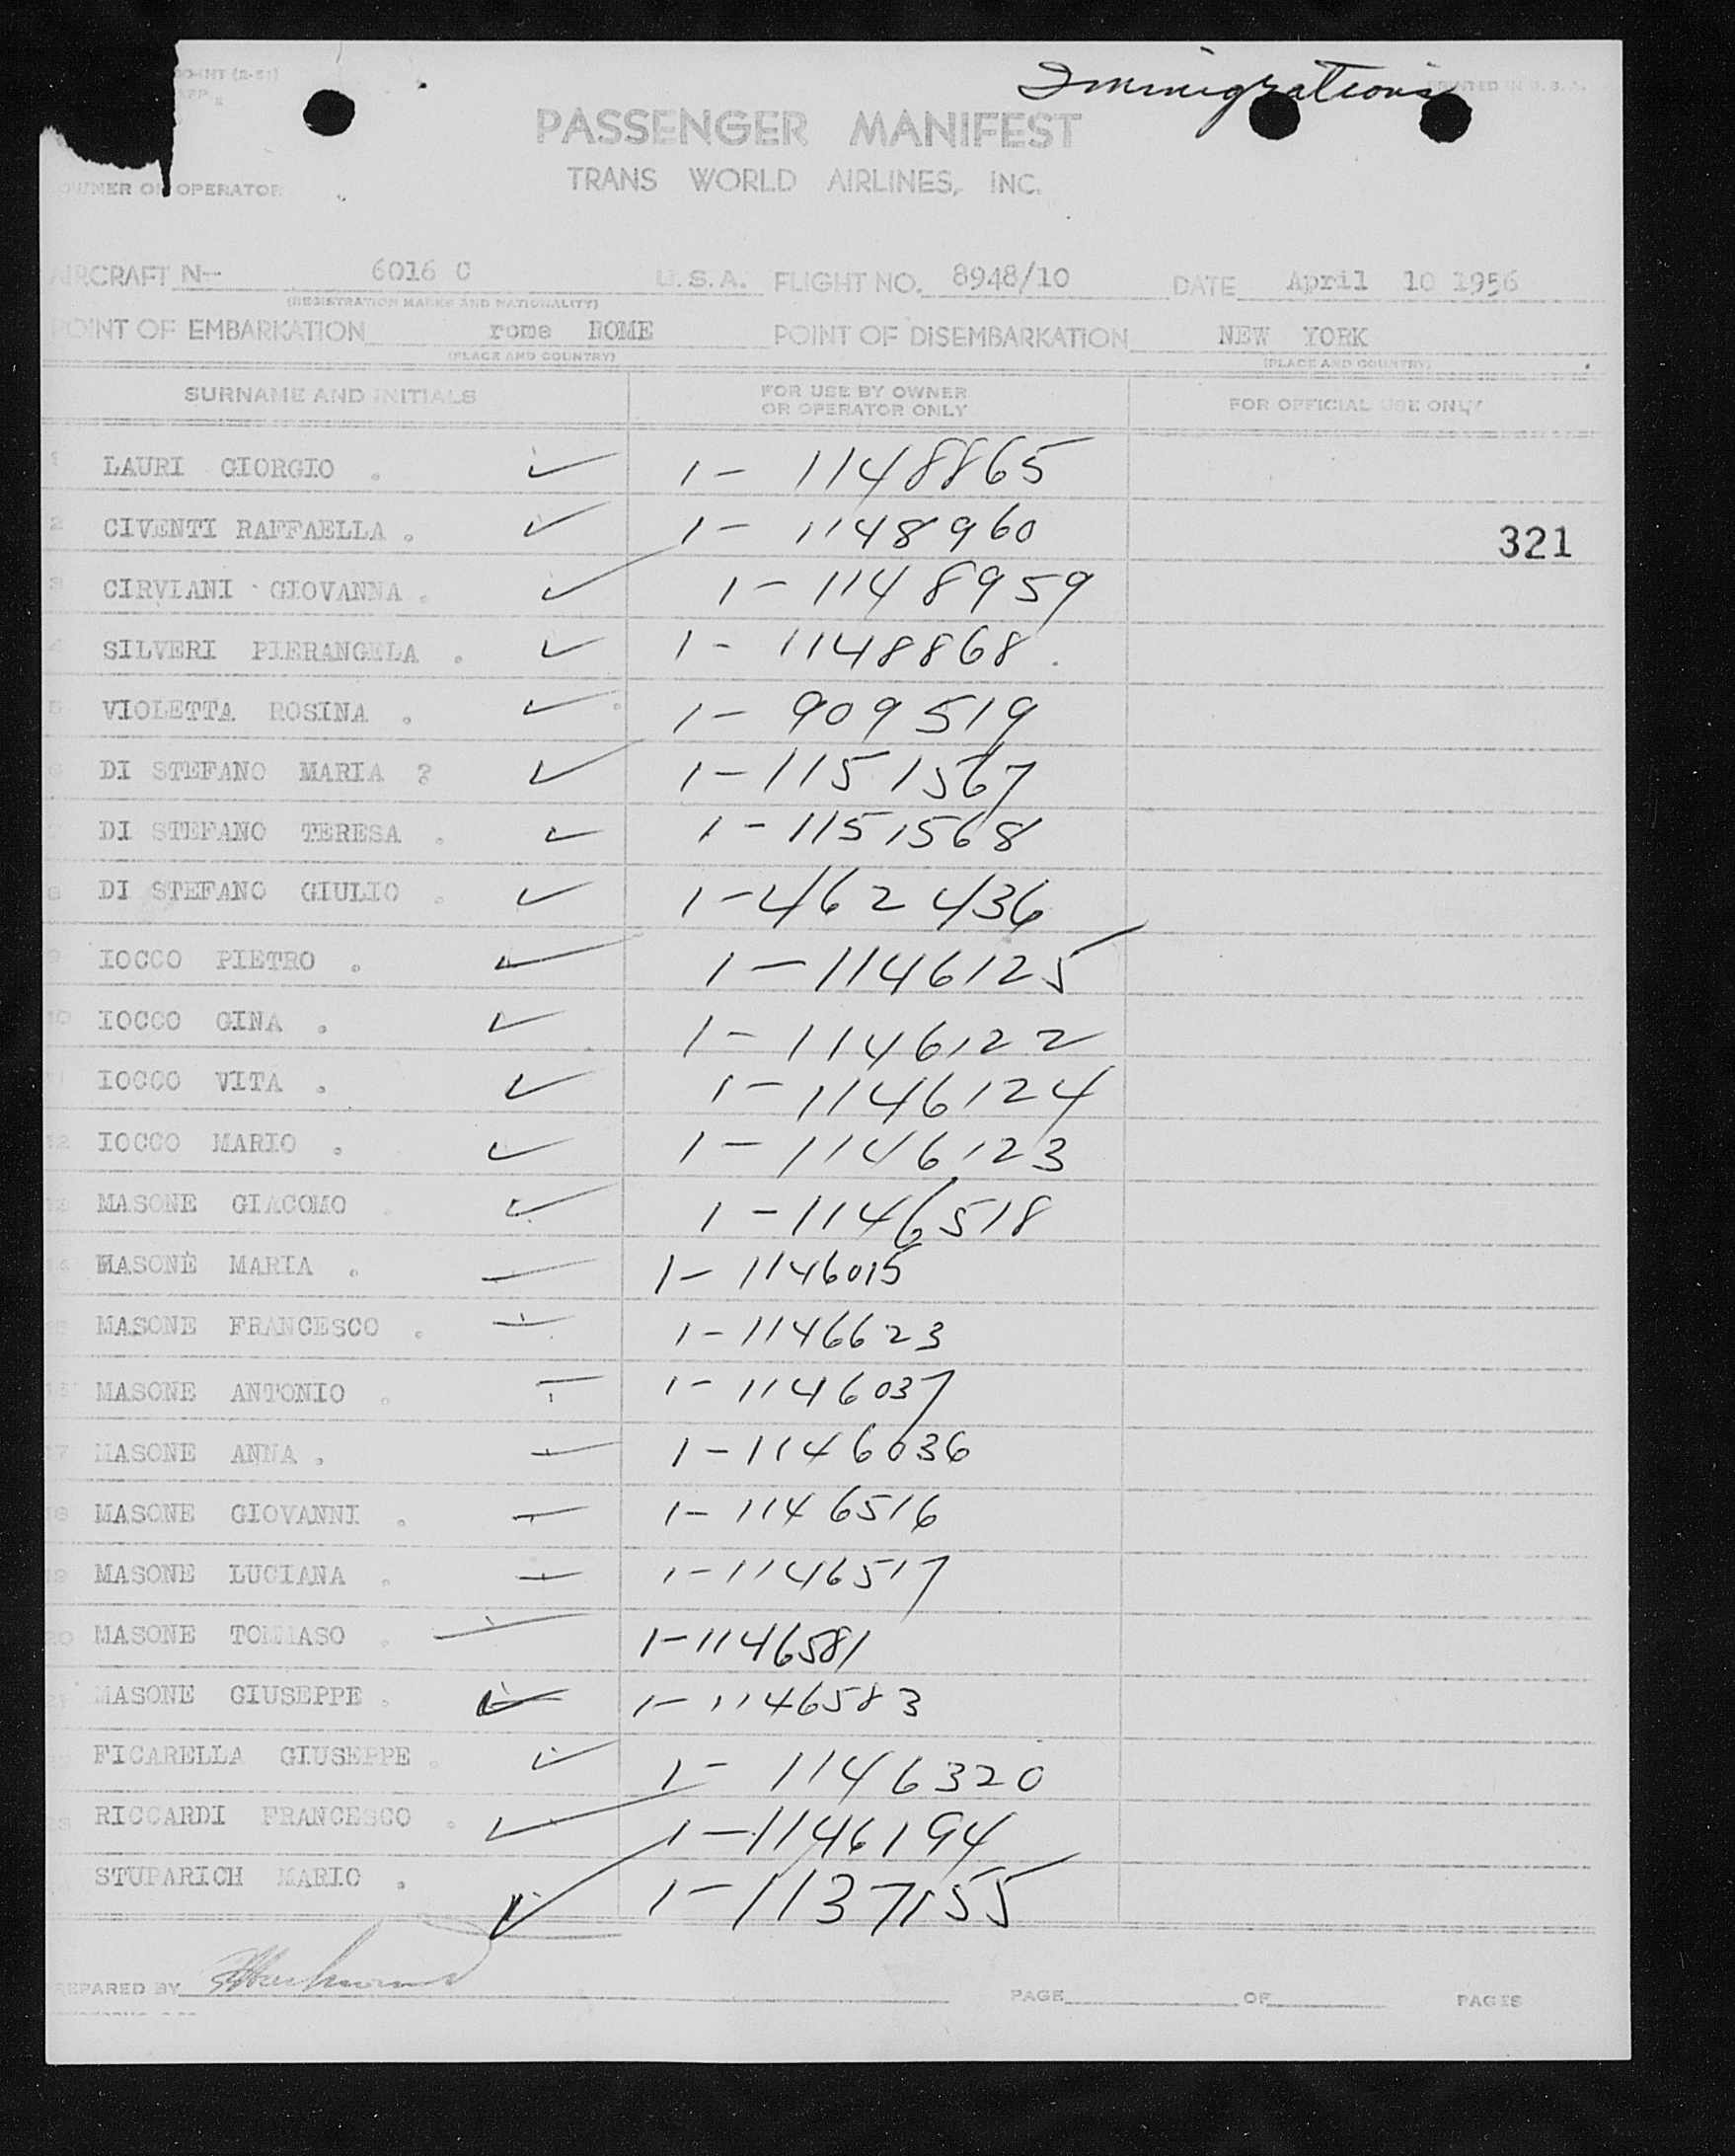 Immigrations
PRINTED IN U.S.A.
PASSENGER MANIFEST
TRANS WORLD AIRLINES, INC.
OWNER OR OPERATOR
AIRCRAFT N- 6016 C U.S.A. FLIGHT NO. 8948/10 DATE April 10 1956
(REGISTRATION MARKS AND NATIONALITY)
POINT OF EMBARKATION rome ROME POINT OF DISEMBARKATION NEW YORK
(PLACE AND COUNTRY) (PLACE AND COUNTRY)
SURNAME AND INITIALS FOR USE BY OWNER OR OPERATOR ONLY FOR OFFICIAL USE ONLY
1 LAURI GIORGIO . 1- 1148865
2 CIVENTI RAFFAELLA . 1- 1148960 321
3 CIRVIANI GIOVANNA . 1- 1148959
4 SILVERI PIERANGELA . 1- 1148868
5 VIOLETTA ROSINA . 1- 909519
6 DI STEFANO MARIA ? 1-1151567
7 DI STEFANO TERESA . 1-1151568
8 DI STEFANO GIULIO . 1-462436
9 IOCCO PIETRO . 1-1146125
10 IOCCO GINA . 1-1146122
11 IOCCO VITA . 1-1146124
12 IOCCO MARIO . 1-1146123
13 MASONE GIACOMO 1-1146518
14 MASONE MARIA . 1-1146015
15 MASONE FRANCESCO . 1-1146623
16 MASONE ANTONIO . 1-1146037
17 MASONE ANNA . 1-1146036
18 MASONE GIOVANNI . 1-1146516
19 MASONE LUCIANA . 1-1146517
20 MASONE TOMMASO . 1-1146581
21 MASONE GIUSEPPE . 1-1146583
FICARELLA GIUSEPPE . 1- 1146320
23 RICCARDI FRANCESCO . 1-1146194
STUPARICH MARIO . 1-1137155
PREPARED BY PAGE OF PAGES